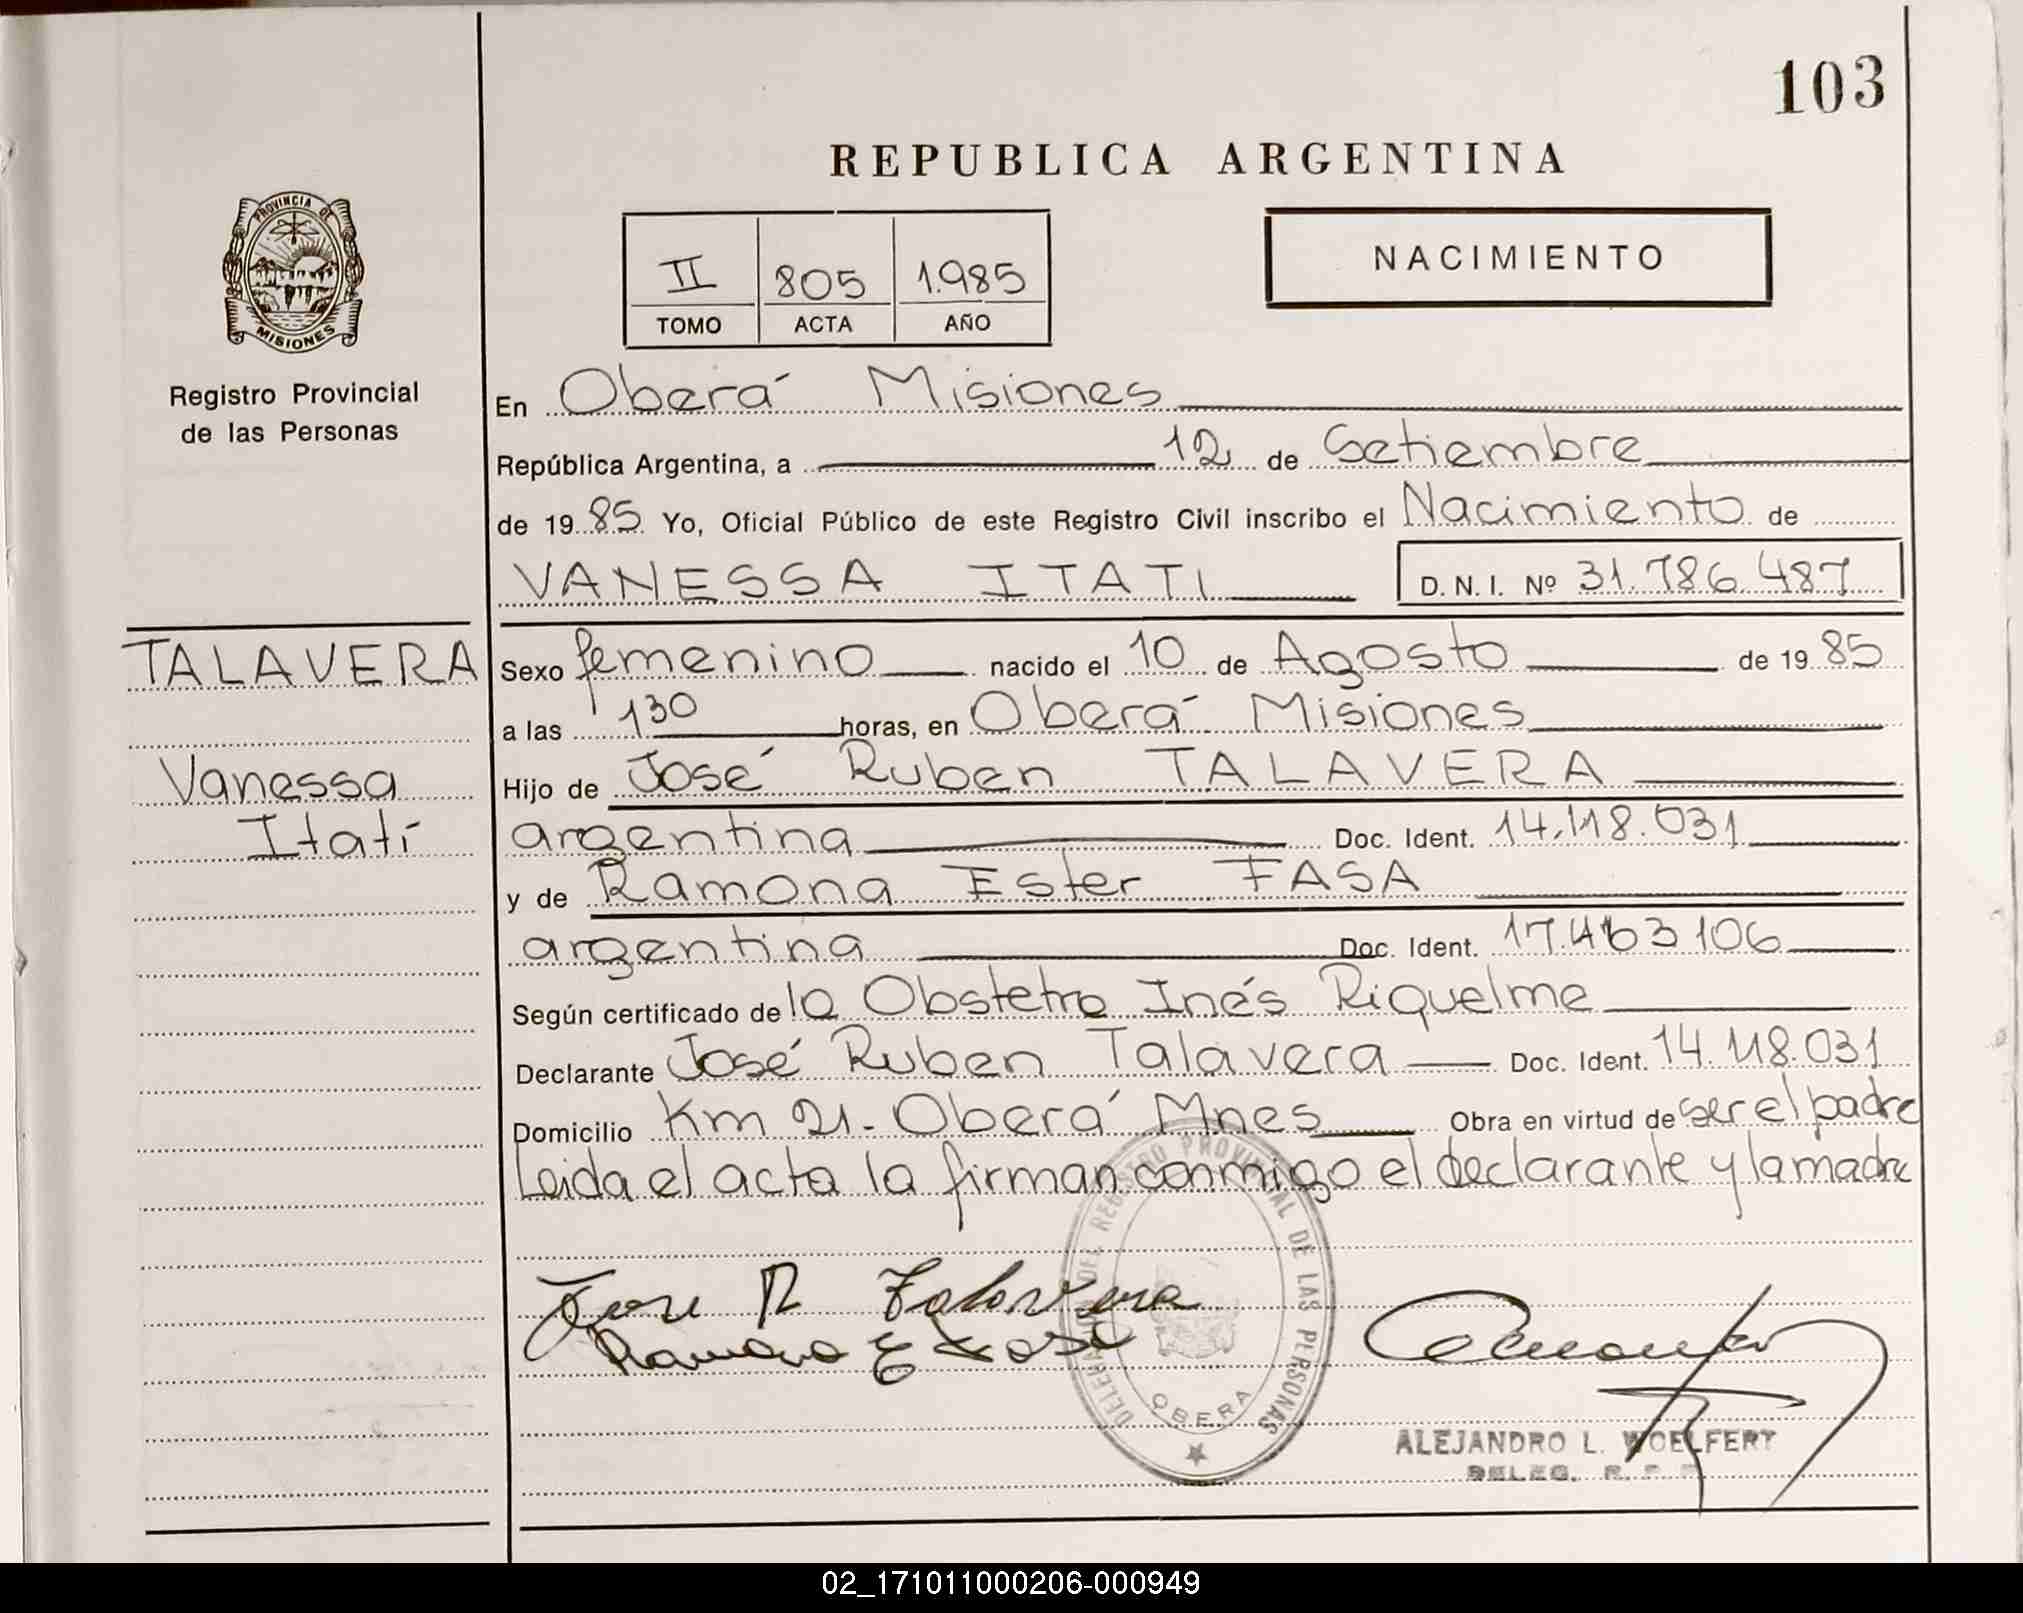 103
REPUBLICA ARGENTINA
PROVINCIA DE
MISIONES
Registro Provincial
de las Personas
II 805 1.985
TOMO ACTA AÑO
NACIMIENTO
En Oberá Misiones
República Argentina, a 12 de Setiembre
de 1985 Yo, Oficial Público de este Registro Civil inscribo el Nacimiento de
VANESSA ITATI D.N.I. Nº 31.786.487
TALAVERA
Vanessa
Itatí
Sexo femenino nacido el 10 de Agosto de 1985
a las 1 30 horas, en Oberá Misiones
Hijo de José Ruben TALAVERA
argentina Doc. Ident. 14.118.031
y de Ramona Ester FASA
argentina Doc. Ident. 106
Según certificado de la Obstetra Inés Riquelme
Declarante José Ruben Talavera Doc. Ident. 14.118.031
Domicilio Km 21- Oberá Mnes Obra en virtud de ser el padre
Leida el acta la firman conmigo el declarante y la madre
DELEGACION DEL REGISTRO PROVINCIAL DE LAS PERSONAS
OBERA
Jose R Talavera
Ramona E
ALEJANDRO L. WOELFERT
DELEG. R. P. P.
02_171011000206-000949